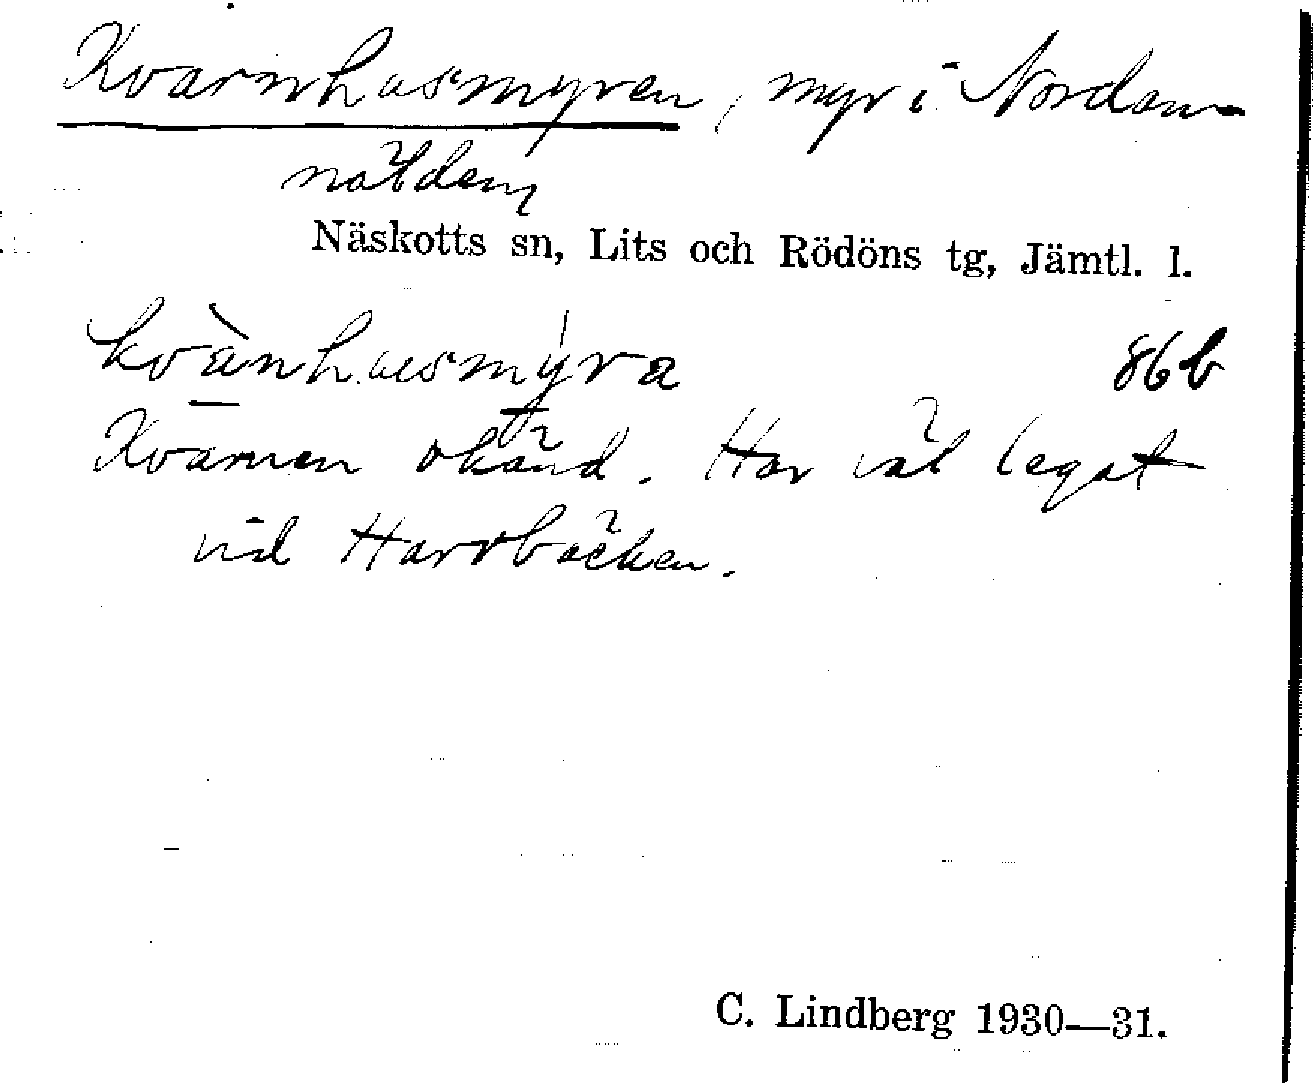 Kvarnhusmyren, myr i Nordan-
nälden,
Näskotts sn, Lits och Rödöns tg, Jämtl. l.
kvànhusmýra 86b
Kvarnen okänd. Har väl legat
vid Harrbäcken.
C. Lindberg 1930—31.